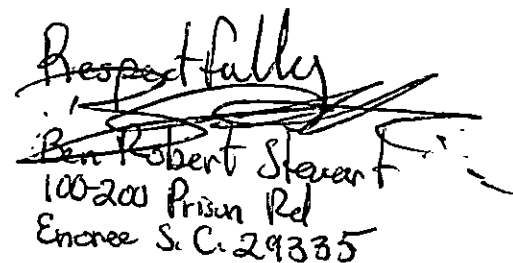 Respectfully
Ben Robert Stewart
100-200 Prison Rd
Enoree S.C. 29335